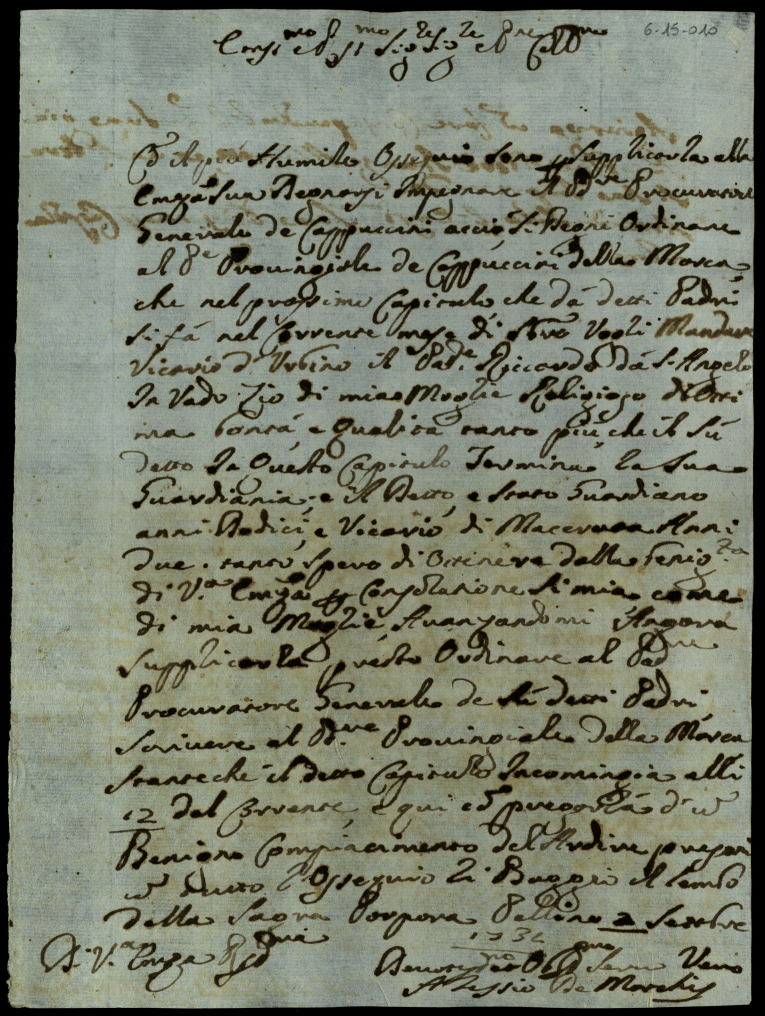 6-15-010
Em.mo e R.mo Sig.re Sig.re e P.ne Col.mo
Cō il più Humile Ossequio sono a supplicarla alla
Emza Sua Degnarsi Impegnare Il Pd.re Procuratore
Generale de Cappuccini acciò Si Degni Ordinare
al P.e Provingiale de Cappuccini della Marca
che nel prossimo Capitulo che da detti Padri
si fà nel Corrente mese di 7bre Vogli Mandare
Vicario d'Urbino il Pad.e Riccardo da S. Angelo
In Vado Zio di mia Moglie Religioso di Otti
ma bontà, e Qualità tanto più che il Sù
detto In Questo Capitulo Termina la Sua
Guardiania, e il Detto e stato Guardiano
anni Dodici, e Vicario di Macerata Anni
due. tanto spero di Ottenere dalla
di V.a Emza p Consolatione Si mia come
di mia Moglie Avanzandomi Angora
supplicarla presto Ordinare al Pad.re
Procuratore Generale de Sù detti Padri
scrivere al Pd.re Provingiale della Marca
stanteche il detto Capitulo Incomingia alli
12 del Corrente, e qui cō d'
Benigno Compiacimento del Ardire
tutto l'Ossequio Li Baggio il lembo
della Sagra Porpora Pellino 2 Settbre
1732
Di V.a Emza R.ma
Devot.mo et Ob.mo Serv. Vero
Alessio De Marchis